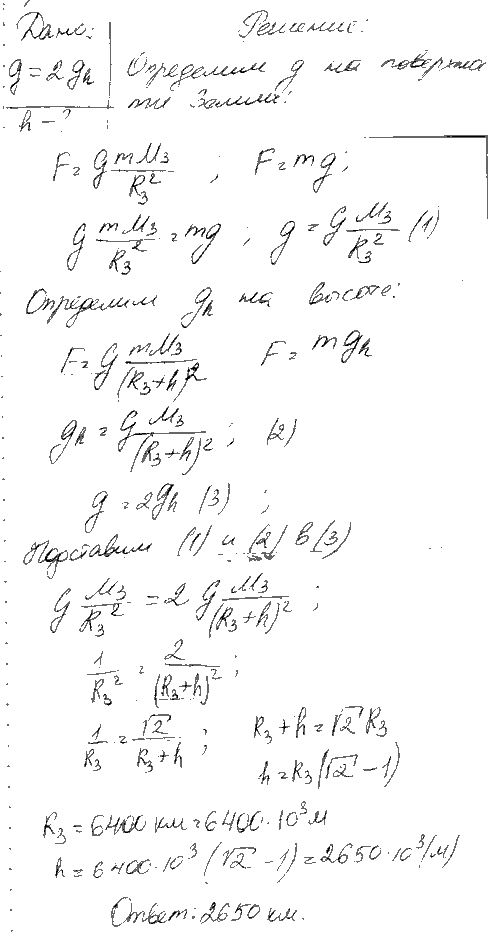 Дано: Решение:
g = 2gₕ Определим g на поверхнос
h - ? ти Земли:
F = G mM₃/R₃² ; F = mg;
G mM₃/R₃² = mg ; g = G M₃/R₃² (1)
Определим gₕ на высоте:
F = G mM₃/(R₃+h)² F = mgₕ
gₕ = G M₃/(R₃+h)² ; (2)
g = 2gₕ (3) ;
Подставим (1) и (2) в (3)
G M₃/R₃² = 2 G M₃/(R₃+h)² ;
1/R₃² = 2/(R₃+h)² ;
1/R₃ = √2/(R₃+h) ; R₃+h = √2 R₃
h = R₃(√2 - 1)
R₃ = 6400 км = 6400·10³ м
h = 6400·10³ (√2 - 1) = 2650·10³ (м)
Ответ: 2650 км.